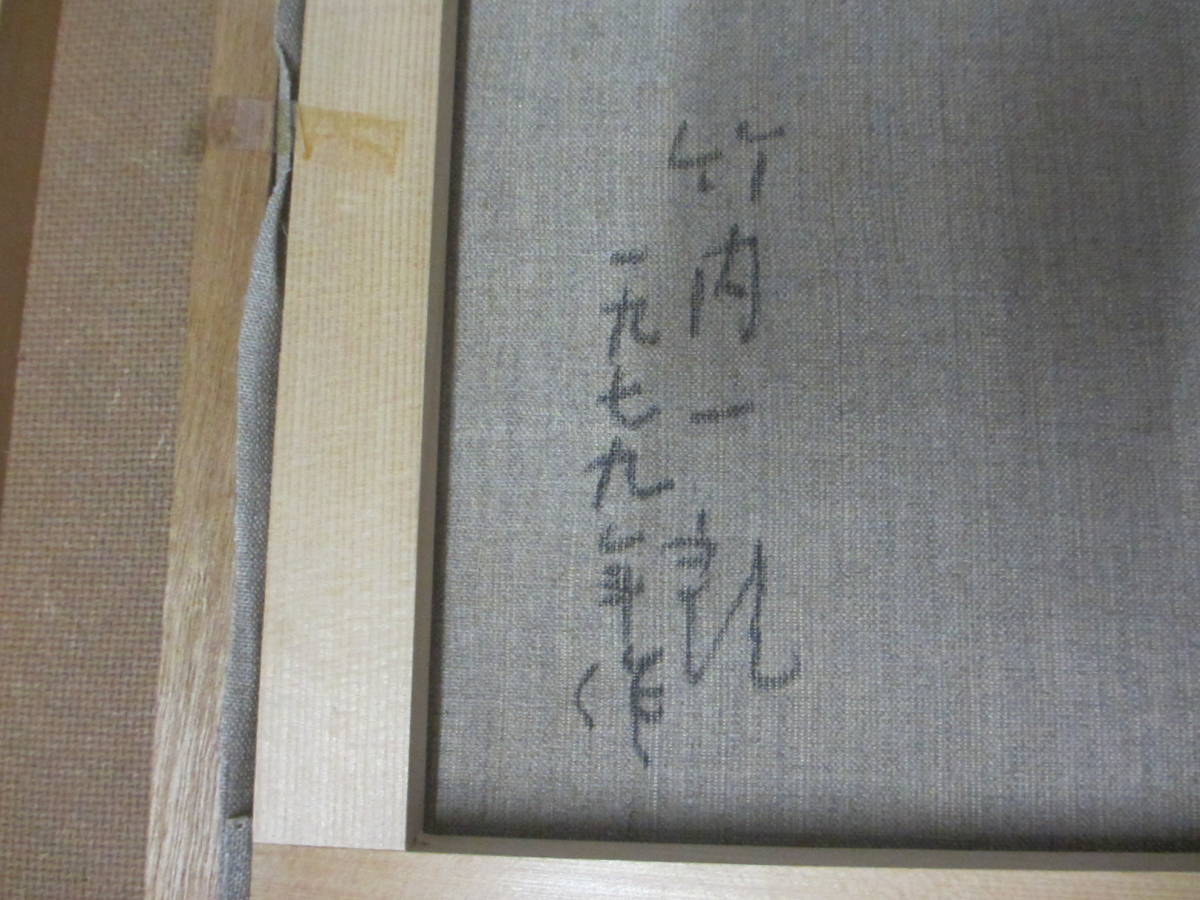 竹内一乱
一九七九年作